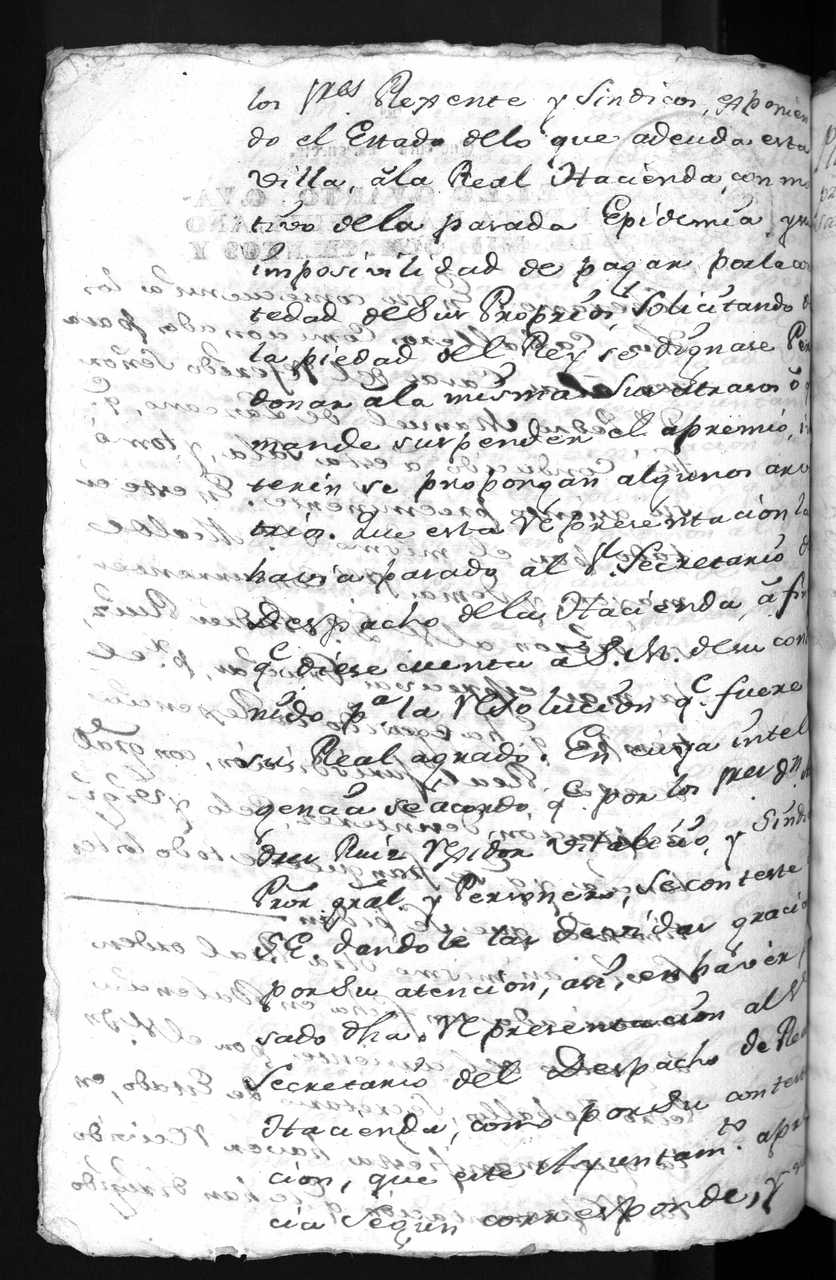 los Sres. Rexente y Sindicos, exponien
do el Estado delo que adeuda esta
Villa, âla Real Hacienda, con mo
tivo dela pasada Epidemia, y su
imposivilidad de pagar por la cor
tedad de Sus Proprios Solicitando d
la piedad del Rey se dignase Per
donar âla misma Sus atrasos ô q
mande suspender el apremio, in
terin se propongan algunos arvi
trios. Que esta Representacion la
havia pasado al Sr. Secretario d
Despacho dela Hacienda, â fin
qe. diese cuenta â S. M. desu conte
nido pa. la Resolucion qe. fuere
su Real agrado. En cuya inteli
gencia se acordó, qe. por los Sres. Dn.
Ruiz Rexidor Vitalicio, y Sindi
Pror. gral. y Personero, se conteste
S.E. dandole las devidas gracias
por Su atencion, asi, en haver p
sado dha. Representacion al Sr.
Secretario del Despacho de Real
Hacienda, como por Su contesta
cion, que este Ayuntamto. apre
cia Segun corresponde, y